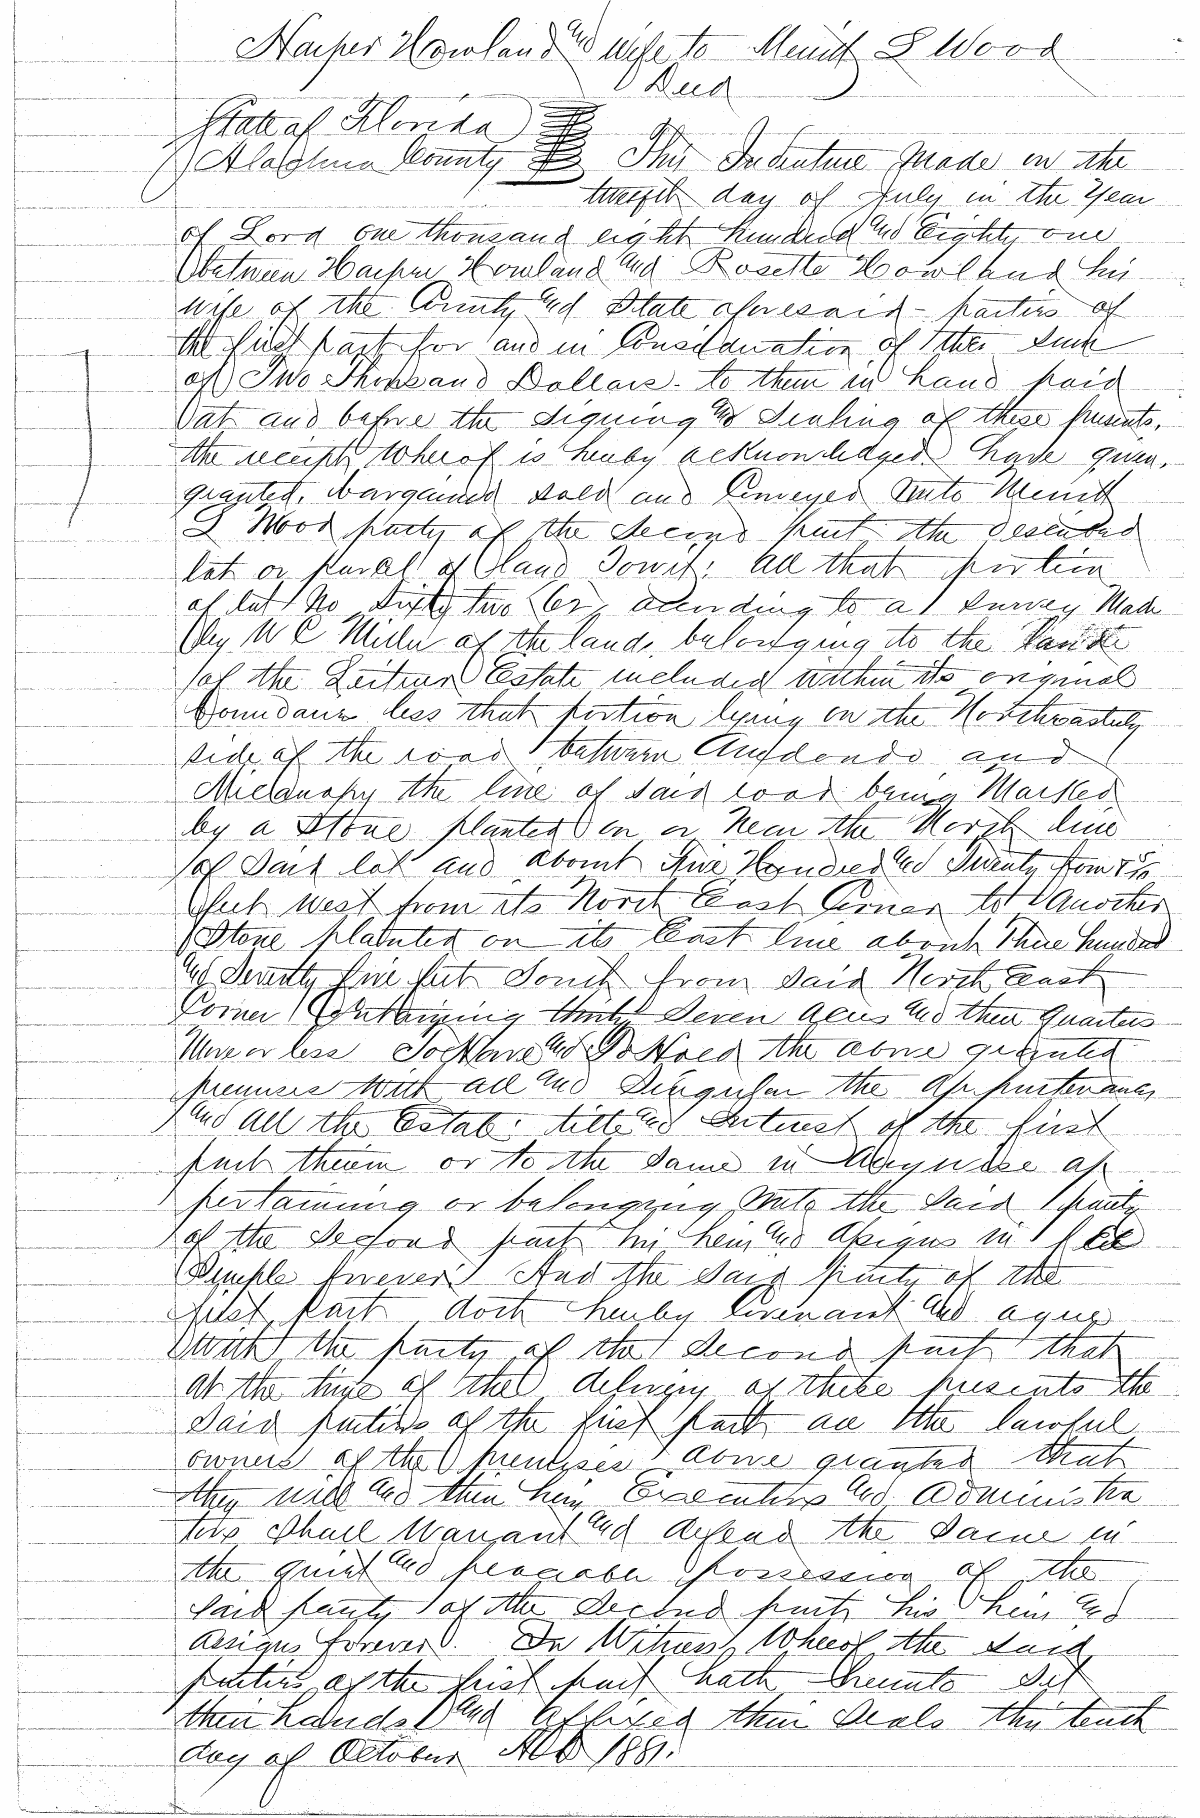 Harper Howland and wife to Merritt S Wood
Deed
State of Florida
Alachua County This Indenture made on the
twelfth day of July in the Year
of Lord one thousand eight hundred and Eighty one
between Harper Howland and Rosette Howland his
wife of the County and State aforesaid - parties of
the first part for and in Consideration of the sum
of Two Thousand Dollars - to them in hand paid
at and before the signing and Sealing of these presents,
the receipt Whereof is hereby acknowledged have given,
granted, bargained sold and Conveyed Unto Merritt
S Wood party of the Second part the described
lot or parcel of land Towit: all that portion
of lot No Sixty two 62 according to a survey Made
by W C Miller of the lands belonging to the
of the Leitner Estate included within its original
boundaries less that portion lying on the Northeasterly
side of the road between and
Micanopy the line of said road being Marked
by a Stone planted on or Near the North line
of Said lot and about Five Hundred and Twenty four
feet West from its North East Corner to Another
Stone planted on its East line about Three hundred
and Seventy five feet South from said North East
Corner Containing thirty Seven acres and three quarters
More or less To Have and To Hold the above granted
premises with all and Singular the appurtenances
and all the Estate title and Interest of the first
part therein or to the same in Anywise ap
pertaining or belonging Unto the Said party
of the Second part his heirs and assigns in fee
Simple forever And the Said party of the
first part doth hereby Covenant and agree
with the party of the Second part that
at the time of the delivery of these presents the
Said parties of the first part are the lawful
owners of the premises above granted that
they will and their heirs Executors and Administra
tors Shall Warrant and defend the Same in
the quiet and peaceable possession of the
said party of the Second part his heirs and
assigns forever. In Witness Whereof the said
parties of the first part hath hereunto Set
their hands and affixed their Seals this tenth
day of October AD 1881.